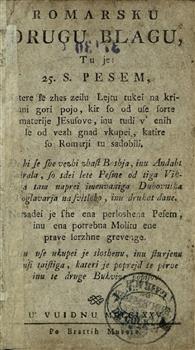 ROMARSKU
DRUGU BLAGU,
Tu je:
25. S. PESEM,
tere se zhes zeilu Lejtu tukei na kri-
gori pojo, kir so od use sorte
materije JEsusove, inu tudi v' enih
se od vezh gnad vkupei, katire
so Romarji tu sadobili.
inu Andaht
so sdei lete Pesme od tiga
tam naprei imenuvaniga Duhovnika
na svitlobo, inu drukat dane.
je sha ena perloshena Pesem,
inu ena potrebna Molitu ene
prave serzhne grevenge.
use ukupei je sloshenu, inu sturjenu
taistiga, kateri je poprejd te perve
inu te druge Bukve
U' VUIDNU
Po Brattih